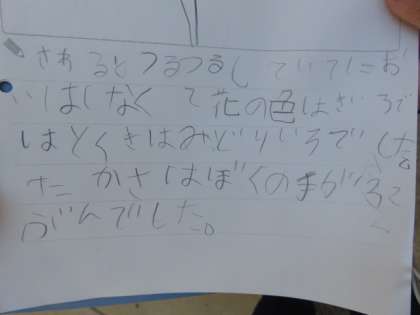 さわるとつるつるしていてにお
いはしなくて花の色はきいろで
はとくきはみどりいろでした。
たかさはぼくの手が3こ
ぶんでした。